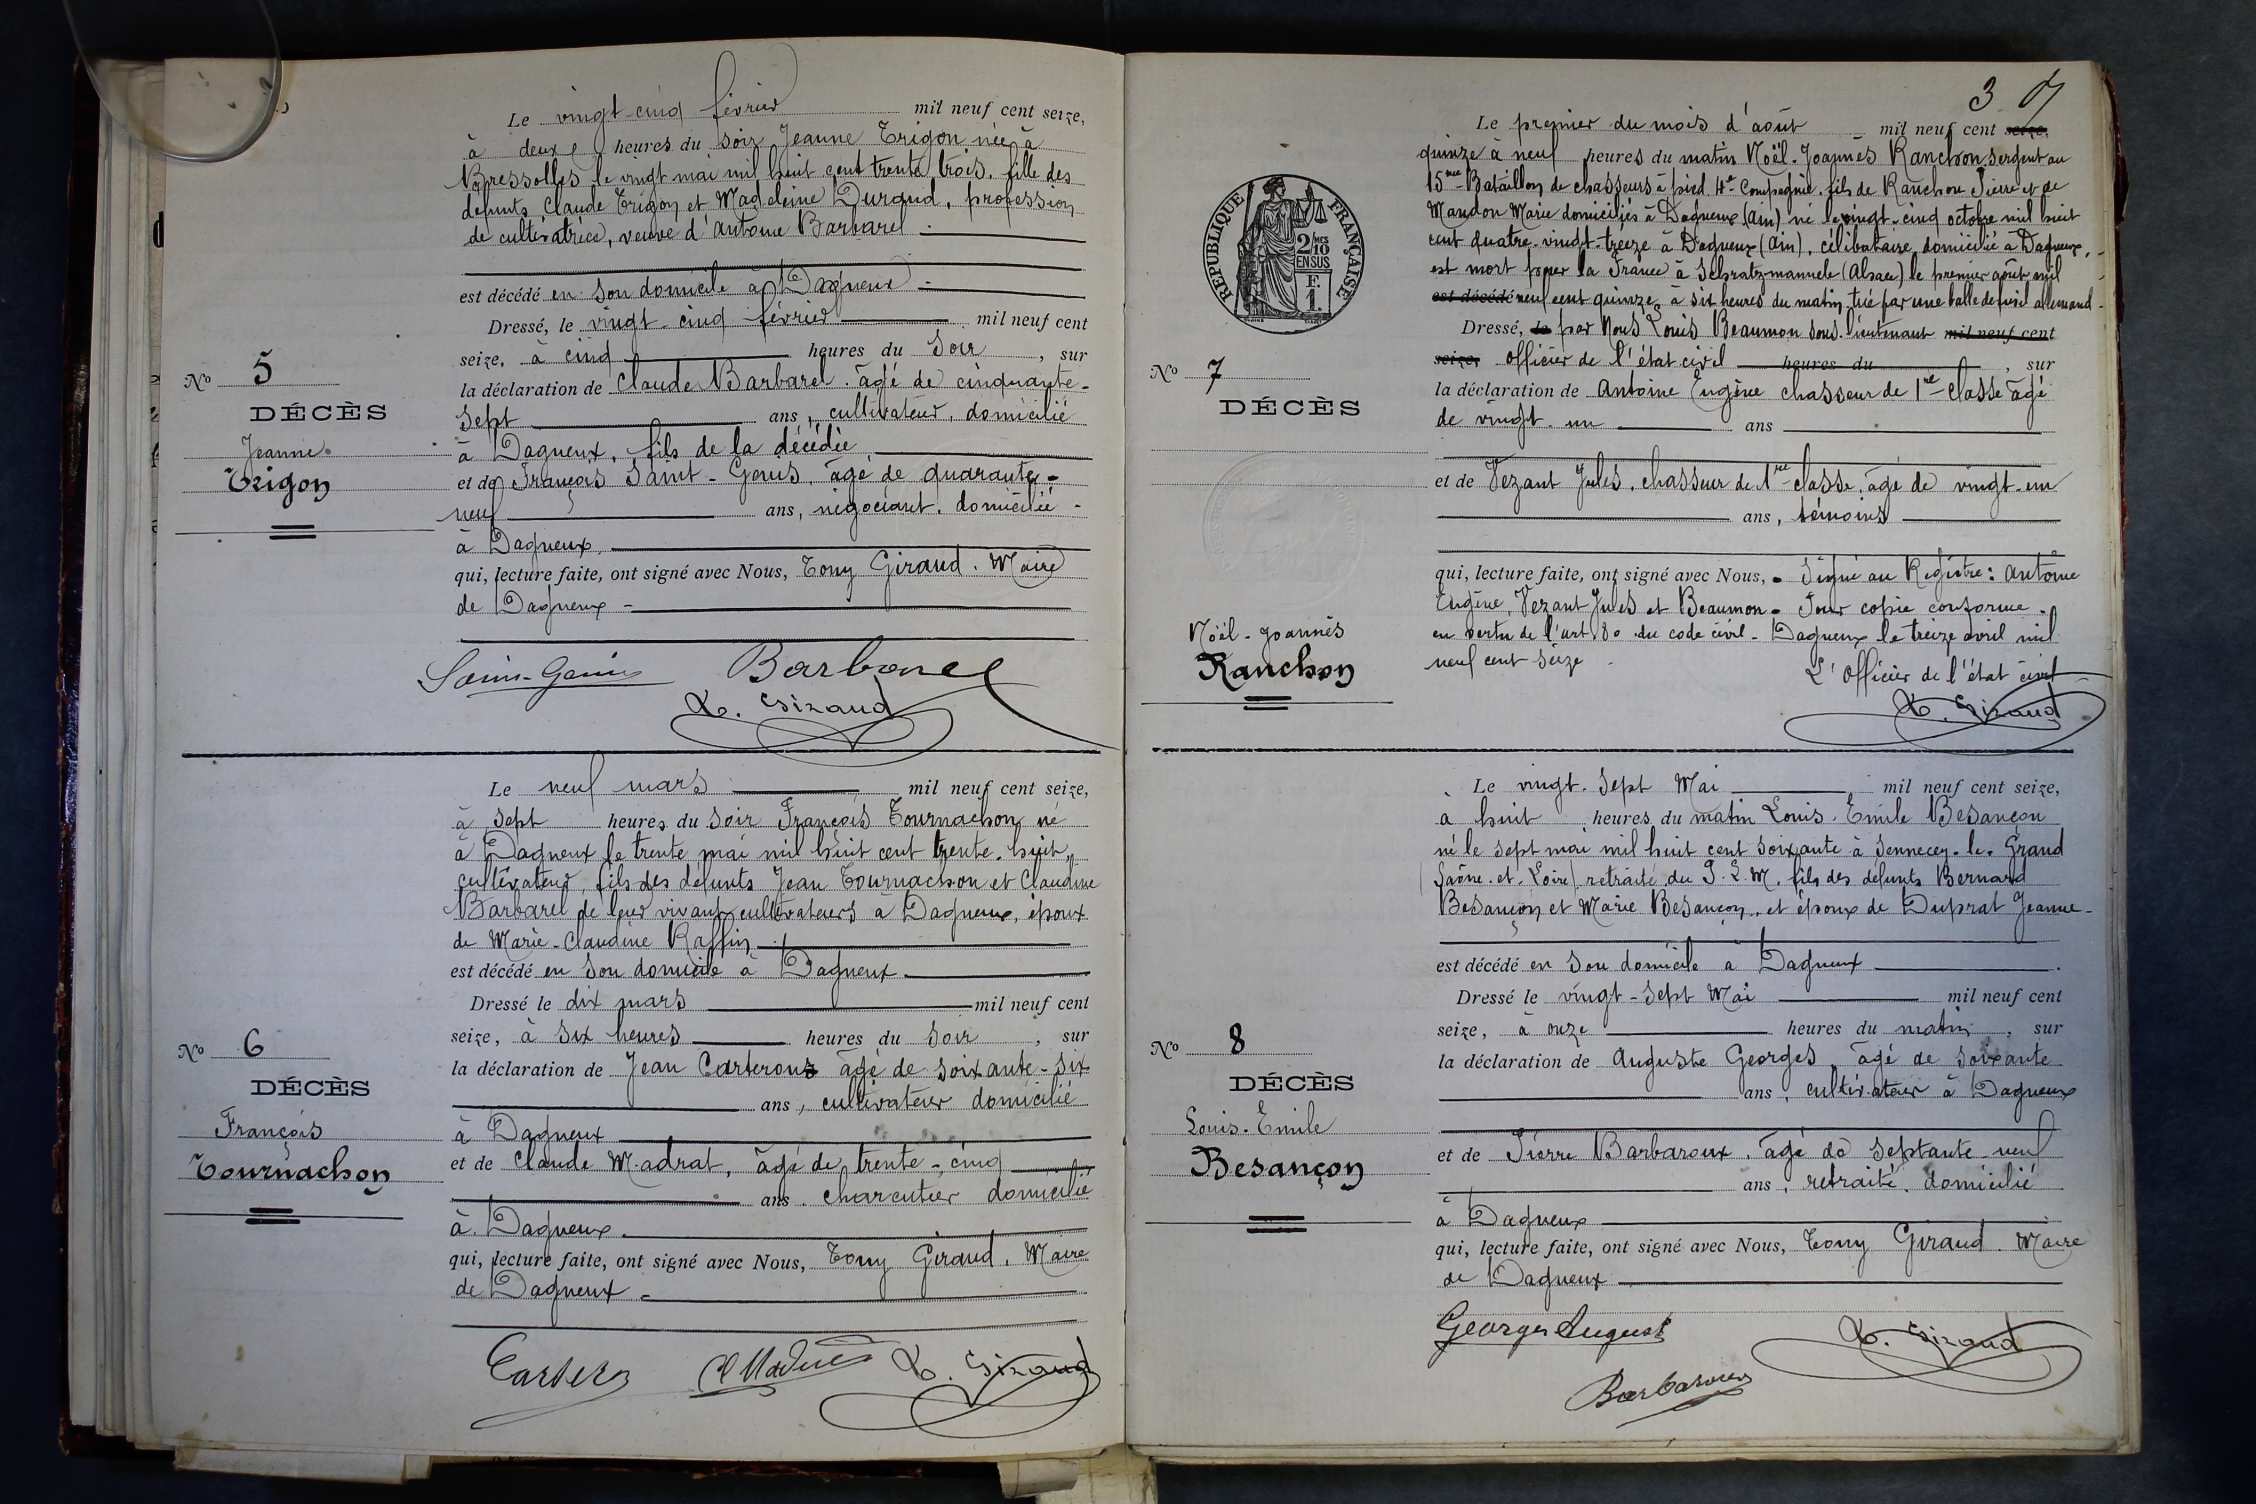 Le vingt-cinq février mil neuf cent seize,
à deux heures du soir Jeanne Trigon née à
Bressolles le vingt mai mil huit cent trente trois, fille des
défunts Claude Trigon et Madeleine Durand, profession
de cultivatrice, veuve d'Antoine Barbarel
est décédé en son domicile à Dagneux
Dressé, le vingt-cinq février mil neuf cent
seize, à cinq heures du soir, sur
la déclaration de Claude Barbarel. âgé de cinquante-
sept ans, cultivateur, domicilié
à Dagneux, fils de la décédée
et de François Saint-Genis, âgé de quarante-
neuf ans, négociant, domicilié
à Dagneux
qui, lecture faite, ont signé avec Nous, Tony Giraud. Maire
de Dagneux
No 5
DÉCÈS
Jeanne
Trigon
Barbarel
T. Giraud
Le neuf mars mil neuf cent seize,
à sept heures du soir François Tournachon né
à Dagneux le trente mai mil huit cent trente-huit,
cultivateur, fils des défunts Jean Tournachon et Claudine
Barbarel de leur vivant cultivateurs à Dagneux, époux
de Marie-Claudine Raffin
est décédé en son domicile à Dagneux
Dressé le dix mars mil neuf cent
seize, à six heures heures du soir, sur
la déclaration de Jean Carteron âgé de soixante-six
ans, cultivateur domicilié
à Dagneux
et de Claude Madrat, âgé de trente-cinq
ans. charcutier domicilié
à Dagneux.
qui, lecture faite, ont signé avec Nous, Tony Giraud. Maire
de Dagneux
No 6
DÉCÈS
François
Tournachon
T. Giraud
3
Le premier du mois d'août mil neuf cent seize,
quinze à neuf heures du matin Noël-Joannès Ranchon, sergent au
15me Bataillon de chasseurs à pied 4e Compagnie, fils de Ranchon Pierre et de
Mandon Marie domiciliés à Dagneux (Ain) né le vingt-cinq octobre mil huit
cent quatre-vingt-treize à Dagneux (Ain), célibataire, domicilié à Dagneux,
est mort pour la France à Schratzmannele (Alsace) le premier août mil
est décédé neuf cent quinze, à six heures du matin, tué par une balle de fusil allemand
Dressé, le par Nous Louis Beaumon sous-lieutenant mil neuf cent
seize, officier de l'état civil heures du, sur
la déclaration de Antoine Eugène chasseur de 1re classe âgé
de vingt-un ans
et de Vezant Jules, chasseur de 1re classe, âgé de vingt-un
ans, témoins
qui, lecture faite, ont signé avec Nous, Signé au Registre: Antoine
Eugène, Vezant Jules et Beaumon. Pour copie conforme.
en vertu de l'art 80 du code civil - Dagneux le treize avril mil
neuf cent seize
L'Officier de l'état civil
T. Giraud
RÉPUBLIQUE FRANÇAISE
2/10mes
EN SUS
1 F.
No 7
DÉCÈS
Noël-Joannès
Ranchon
Le vingt-sept Mai mil neuf cent seize,
à huit heures du matin Louis-Emile Besançon
né le sept mai mil huit cent soixante à Sennecey-le-Grand
(Saône-et-Loire), retraité du P.L.M. fils des défunts Bernard
Besançon et Marie Besançon, et époux de Duprat Jeanne
est décédé en son domicile à Dagneux
Dressé le vingt-sept Mai mil neuf cent
seize, à onze heures du matin, sur
la déclaration de Auguste Georges, âgé de soixante
ans, cultivateur à Dagneux
et de Pierre Barbaroux, âgé de septante-neuf
ans, retraité, domicilié
à Dagneux
qui, lecture faite, ont signé avec Nous, Tony Giraud. Maire
de Dagneux
No 8
DÉCÈS
Louis-Emile
Besançon
Georges August
T. Giraud
Barbaroux